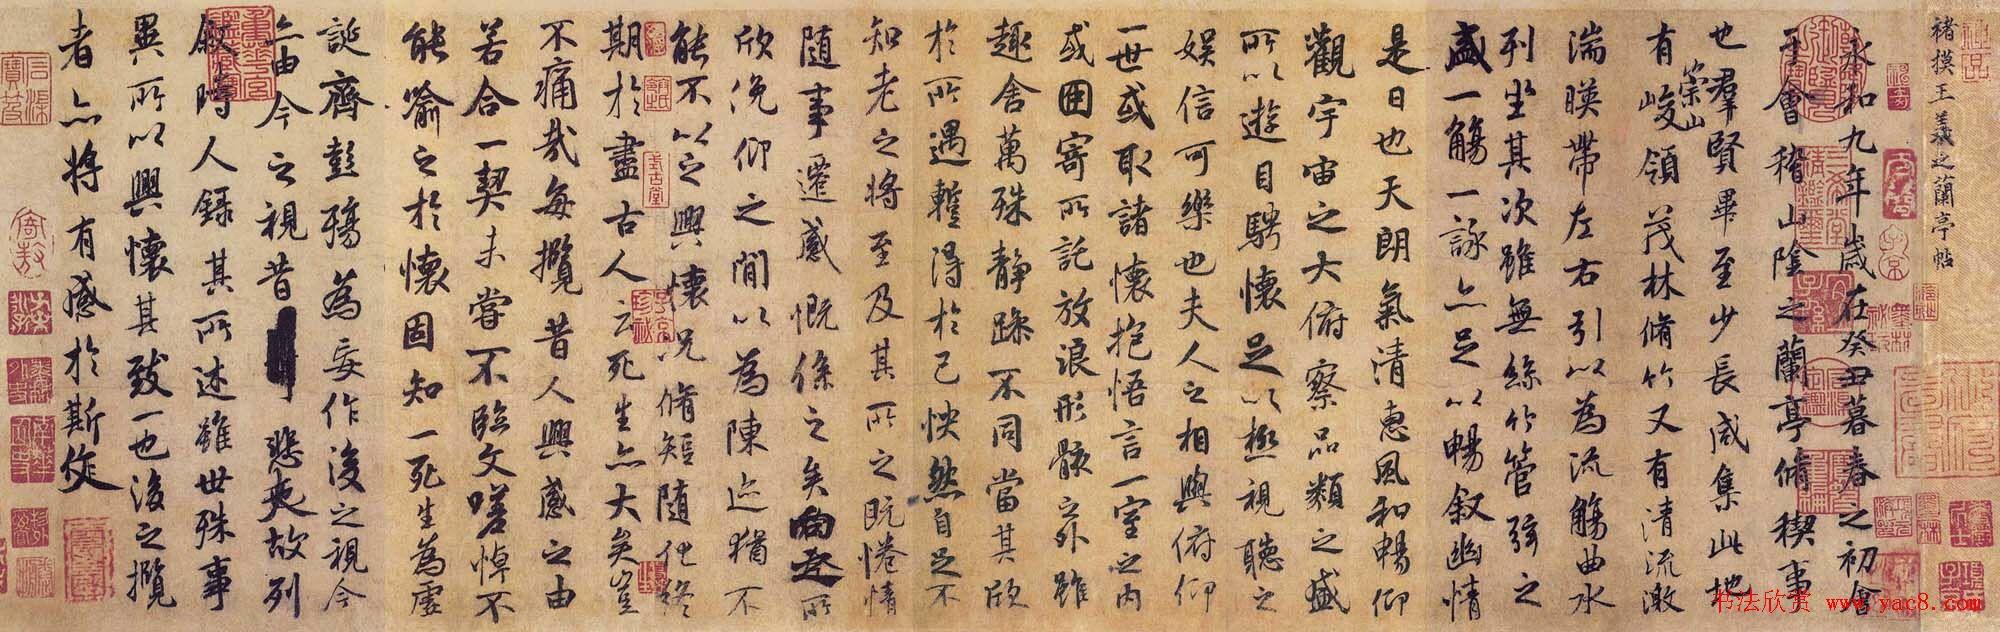 褚摸王羲之蘭亭帖
永和九年歲在癸丑暮春之初會
于會稽山陰之蘭亭脩稧事
也羣賢畢至少長咸集此地
有崇山峻領茂林脩竹又有清流激
湍暎帶左右引以為流觴曲水
列坐其次雖無絲竹管弦之
盛一觴一詠亦足以暢敘幽情
是日也天朗氣清惠風和暢仰
觀宇宙之大俯察品類之盛
所以遊目騁懷足以極視聽之
娛信可樂也夫人之相與俯仰
一世或取諸懷抱悟言一室之內
或因寄所託放浪形骸之外雖
趣舍萬殊靜躁不同當其欣
於所遇蹔得於己怏然自足不
知老之將至及其所之既惓情
隨事遷感慨係之矣向之所
欣俛仰之間以為陳迹猶不
能不以之興懷況脩短隨化終
期於盡古人云死生亦大矣豈
不痛哉每攬昔人興感之由
若合一契未嘗不臨文嗟悼不
能喻之於懷固知一死生為虛
誕齊彭殤為妄作後之視今
亦由今之視昔悲夫故列
敘時人錄其所述雖世殊事
異所以興懷其致一也後之攬
者亦將有感於斯文
书法欣赏 www.yac8.com